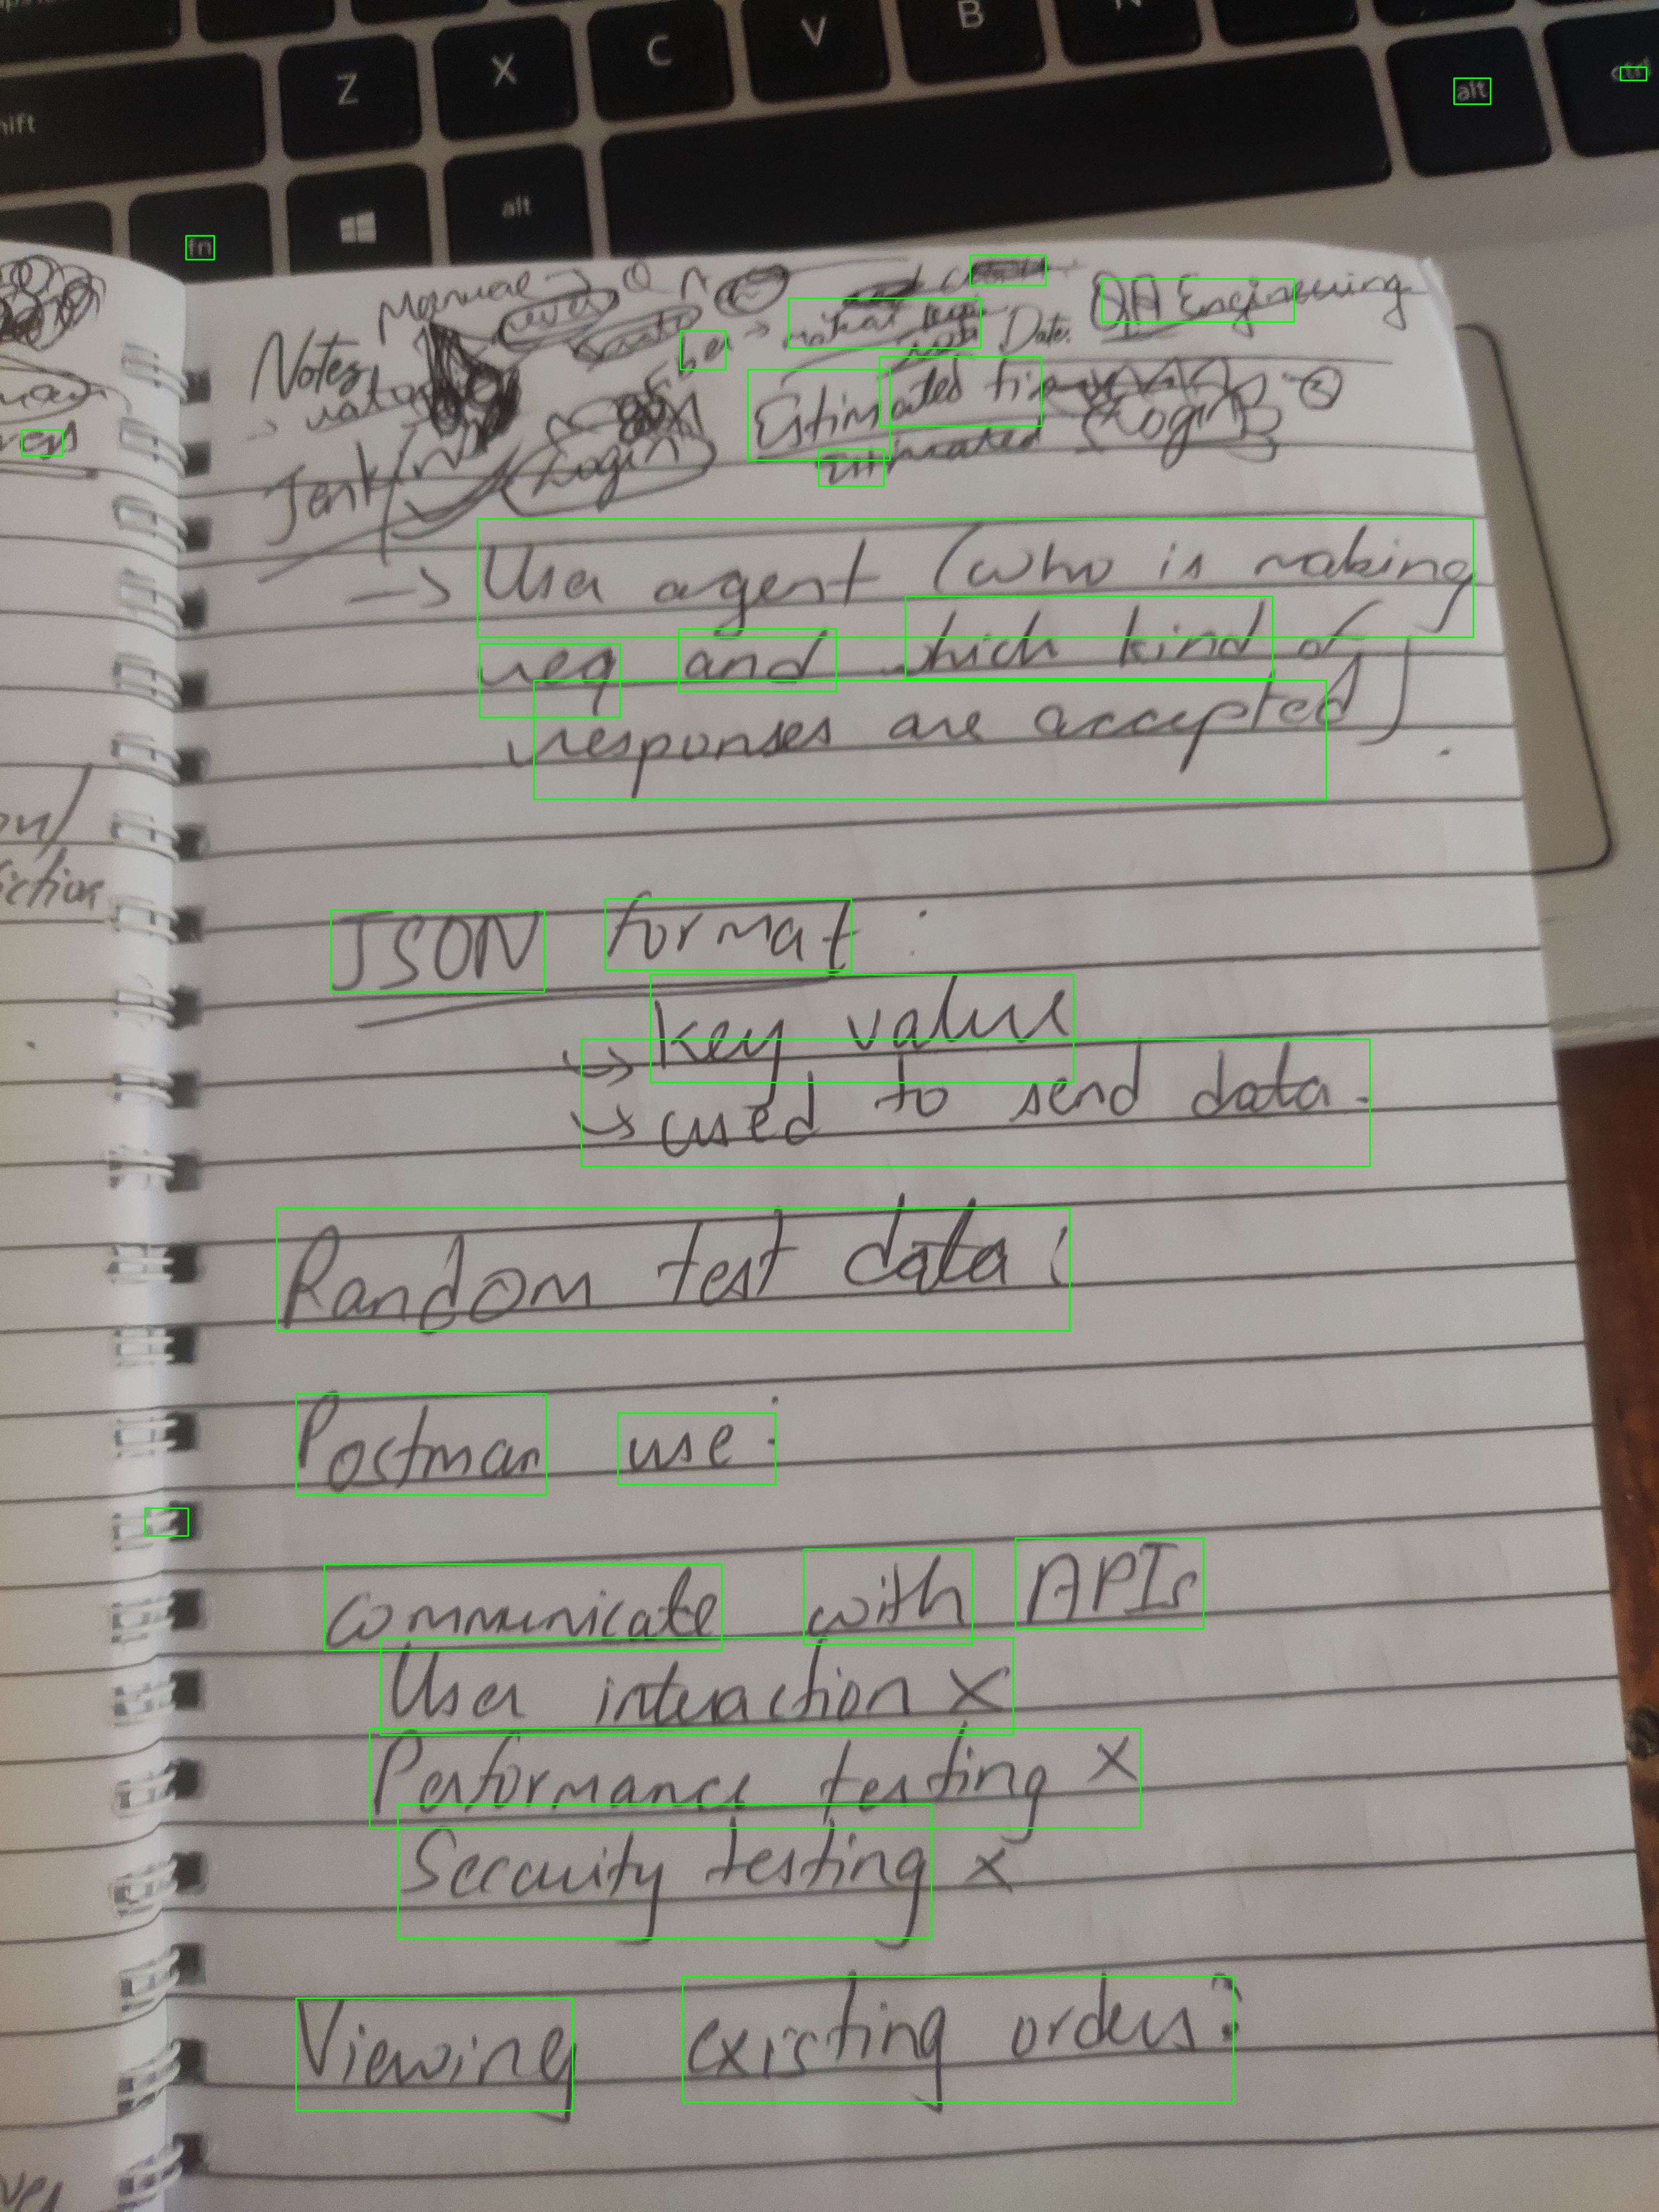 Z X C V B N
hift alt ctrl
fn alt
Manual → Q A
QA Engineering
Notes Date:
Estimated
Estimated
Login
Jenkins Login
→ User agent (who is making
req and which kind of
responses are accepted)
JSON format:
↳ key value
↳ used to send data.
Random test data:
Postman use:
communicate with APIs
User interaction X
Performance testing X
Security testing X
Viewing existing orders: